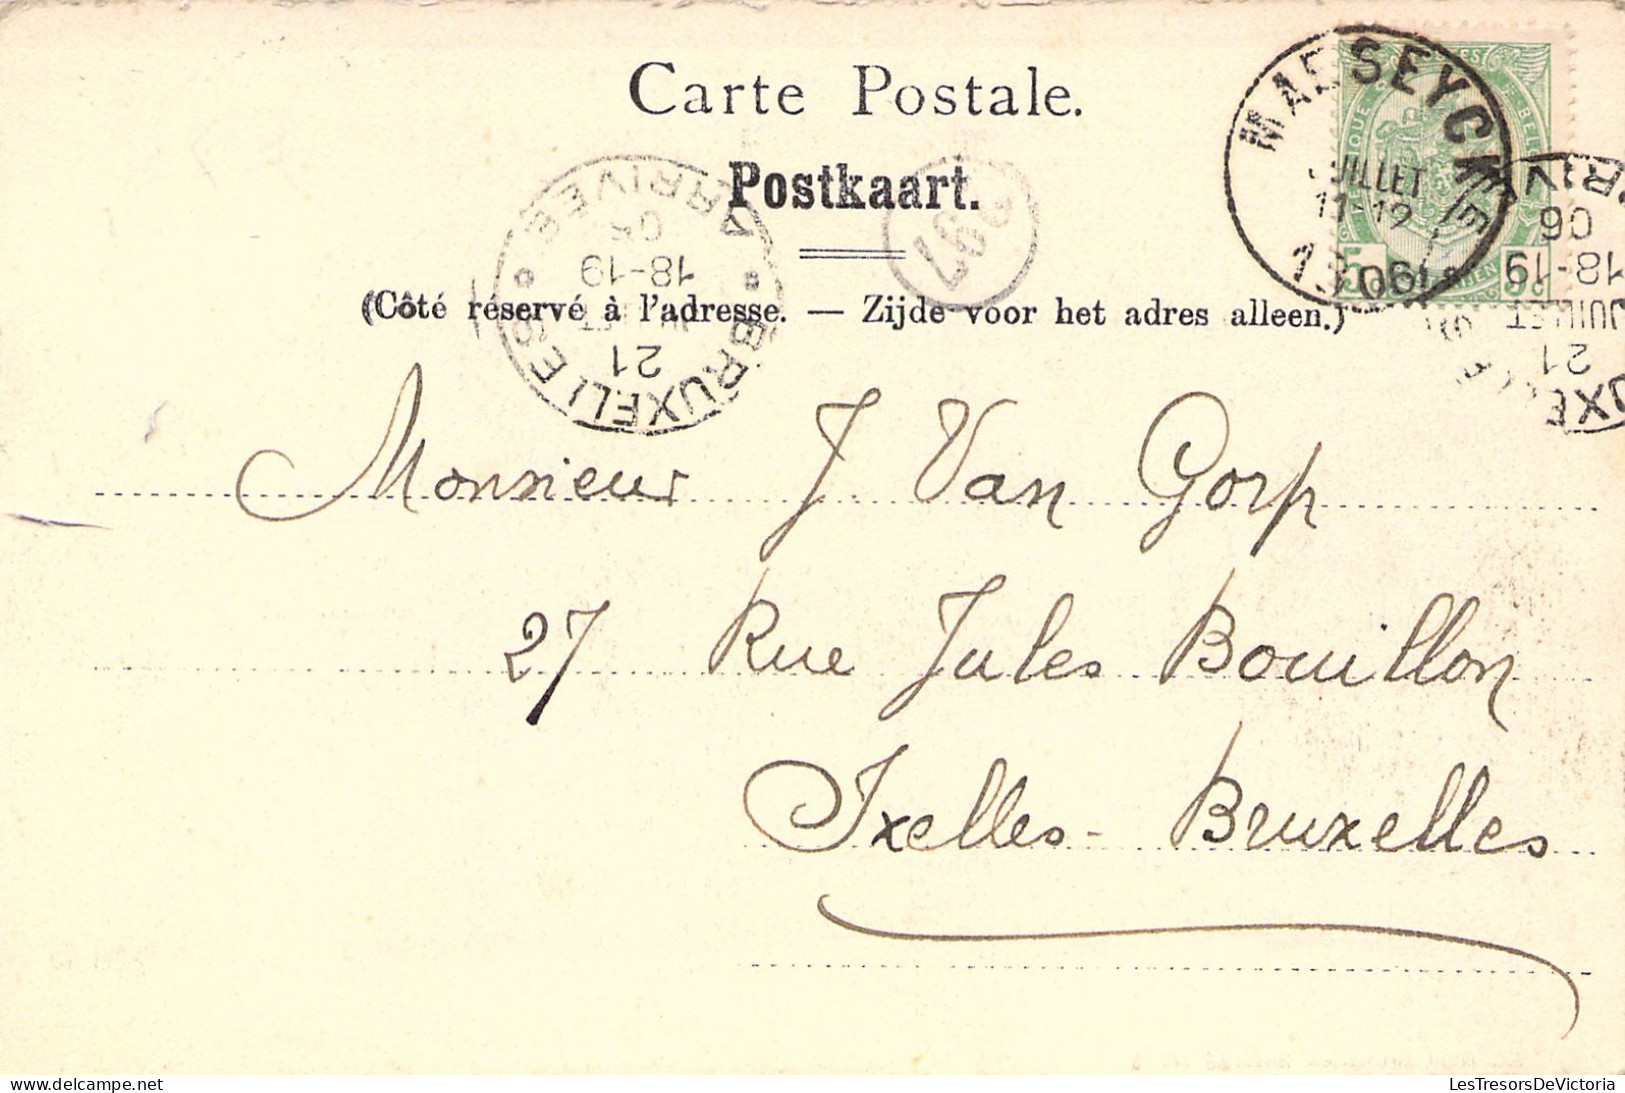 Carte Postale.
Postkaart.
(Côté réservé à l'adresse. — Zijde voor het adres alleen.)
MAESEYCK
JUILLET
11-12
1906
5
BRUXELLES
21
18-19
ARRIVEE
697
21
JUILLET
18-19
06
Monsieur J. Van Gorp
27 Rue Jules Bouillon
Ixelles - Bruxelles
LesTresorsDeVictoria.com
LesTresorsDeVictoria